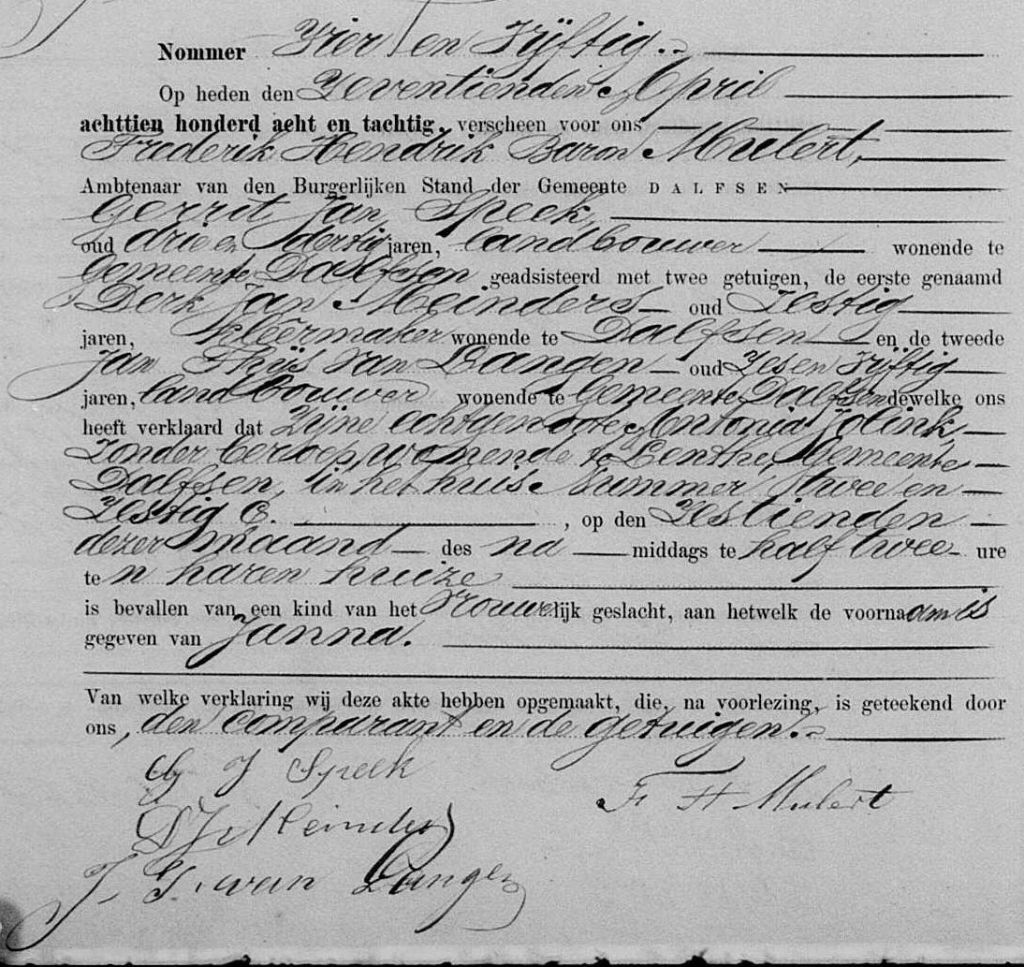 Nommer Vier en Vijftig.
Op heden den Zeventienden April
achttien honderd acht en tachtig, verscheen voor ons
Frederik Hendrik Baron Mulert,
Ambtenaar van den Burgerlijken Stand der Gemeente DALFSEN
Gerrit Jan Speek,
oud drie en dertig jaren, landbouwer wonende te
Gemeente Dalfsen geadsisteerd met twee getuigen, de eerste genaamd
Derk Jan Meinders oud Zestig
jaren, kleermaker wonende te Dalfsen en de tweede
Jan Thijs van Langen oud Zes en Vijftig
jaren, landbouwer wonende te Gemeente Dalfsen dewelke ons
heeft verklaard dat Zijne echtgenoote Antonia Jolink,
Zonder beroep, wonende te Lenthe, Gemeente
Dalfsen, in het huis Nummer twee en
Zestig C. , op den Zestienden
dezer maand des na middags te half twee ure
te n haren huize
is bevallen van een kind van het Vrouwelijk geslacht, aan hetwelk de voornaam is
gegeven van Janna.
Van welke verklaring wij deze akte hebben opgemaakt, die, na voorlezing, is geteekend door
ons, den comparant en de getuigen.
G J Speek
F H Mulert
D J Meinders
J. T. van Langen